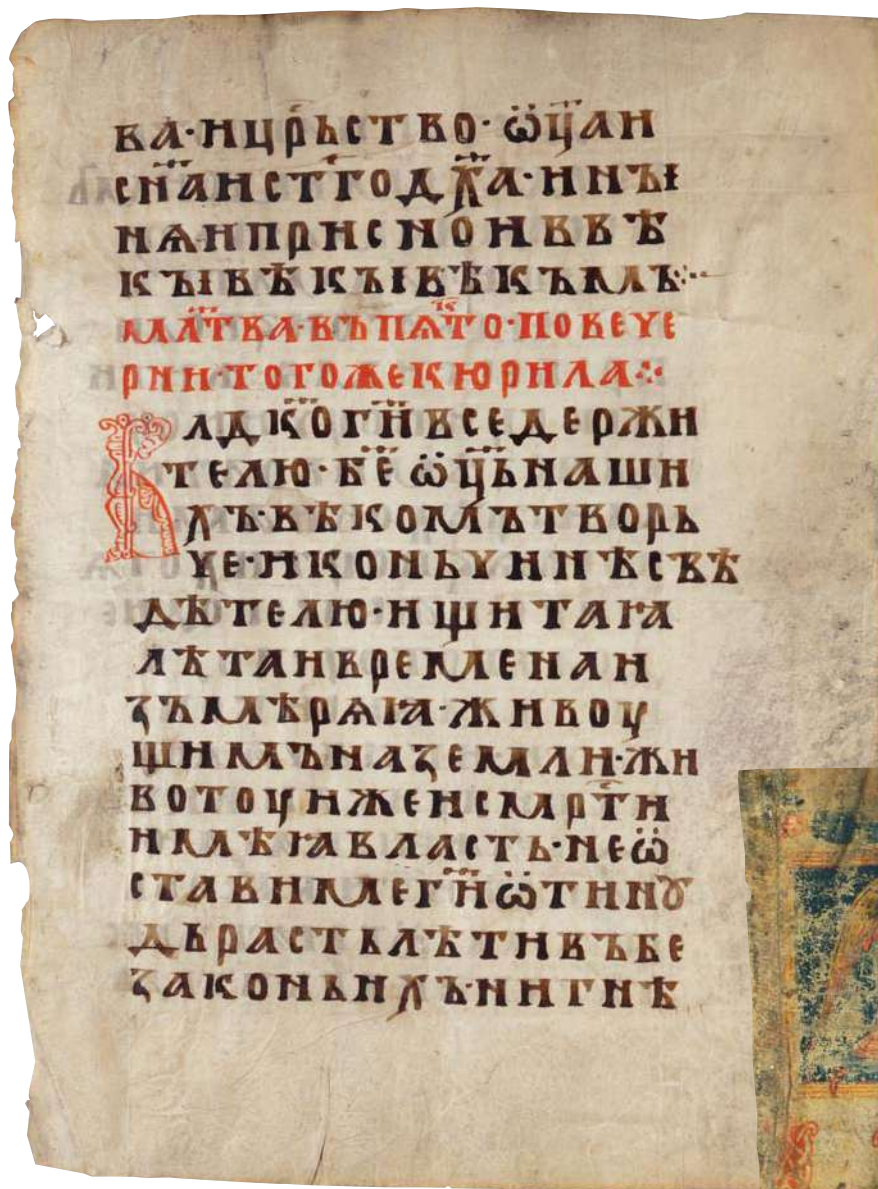 ва·и цр҃ьство·ѿц҃аи
сн҃аист҃годх҃а·инꙑ
нѧиприсноиввѣ
кꙑвѣкꙑвѣкъмъ·:·
мл҃тва·въпѧт҃о·повече
рнитогожекюрила·:·
Влд҃когн҃вседержи
телю·бе҃ѿц҃ьнаши
хъ·вѣкомътворь
че·иконьчинѣсвѣ
дѣтелю·ищитаꙗ
лѣтаивременаи
ꙁъмѣрѧꙗ·живоу
щимънаꙁемли·жи
вотоуижеисмрт҃и
имѣꙗвласть·неѡ
ставимегн҃ѿтинꙋ
дьрастьлѣтивъбе
ꙁаконьихъ·нигнѣ